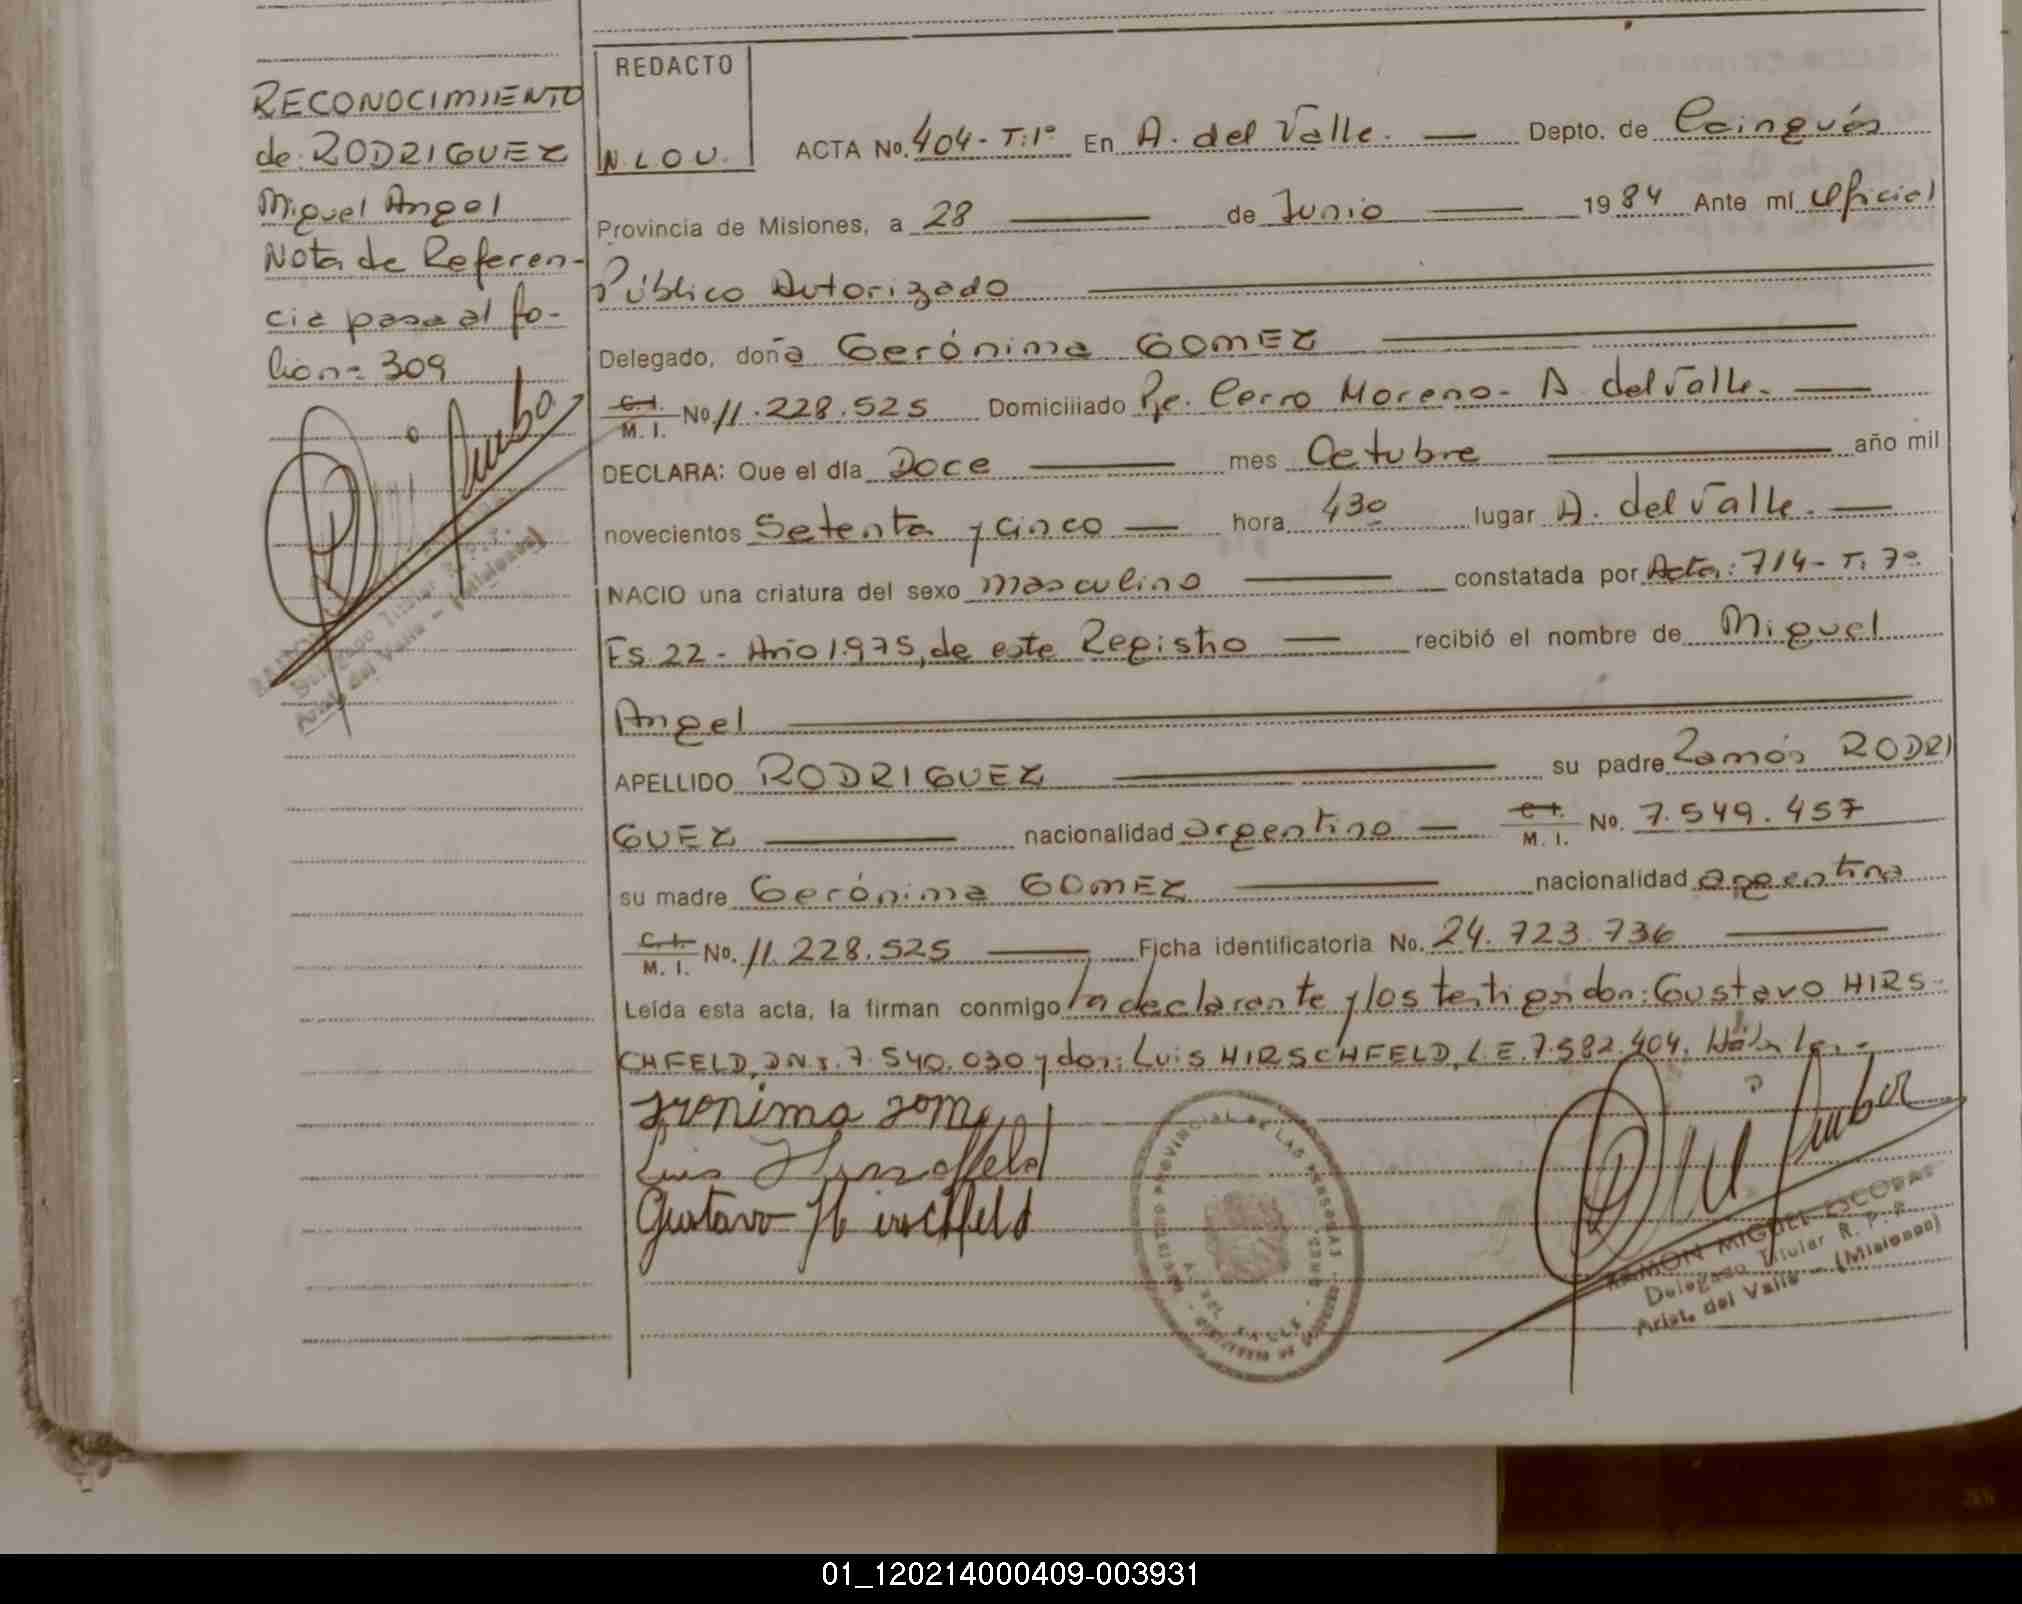 RECONOCIMIENTO
de RODRIGUEZ
Miguel Angel
Nota de Referen-
cia pasa al fo-
lio n= 309
REDACTO
N.L.O.U.
ACTA No. 404- T:1º En A. del Valle. Depto. de Cainguás
Provincia de Misiones, a 28 de Junio 1984 Ante mí Oficial
Público Autorizado
Delegado, doña Gerónima GOMEZ
C.I. M. I. No 11.228.525 Domiciliado Pje. Cerro Moreno- A. del Valle.
DECLARA: Que el día Doce mes Octubre año mil
novecientos Setenta y cinco hora 430 lugar A. del Valle.
NACIO una criatura del sexo masculino constatada por Acta: 714- T: 7º
Fs. 22 - Año 1.975, de este Registro recibió el nombre de Miguel
Angel
APELLIDO RODRIGUEZ su padre Ramón RODRI
GUEZ nacionalidad argentino C.I. M. I. No. 7.549.457
su madre Gerónima GOMEZ nacionalidad argentina
C.I. M. I. No. 11.228.525 Ficha identificatoria No. 24.723.736
Leída esta acta, la firman conmigo la declarante y los testigos don: Gustavo HIRS-
CHFELD, D.N.I. 7.540.030 y don: Luis HIRSCHFELD, L.E. 7.582.404.
Luis
Gustavo Hirschfeld
REGISTRO PROVINCIAL DE LAS PERSONAS
RAMON MIGUEL ESCOBAR
Delegado Titular R. P. P.
Arist. del Valle - (Misiones)
01_120214000409-003931